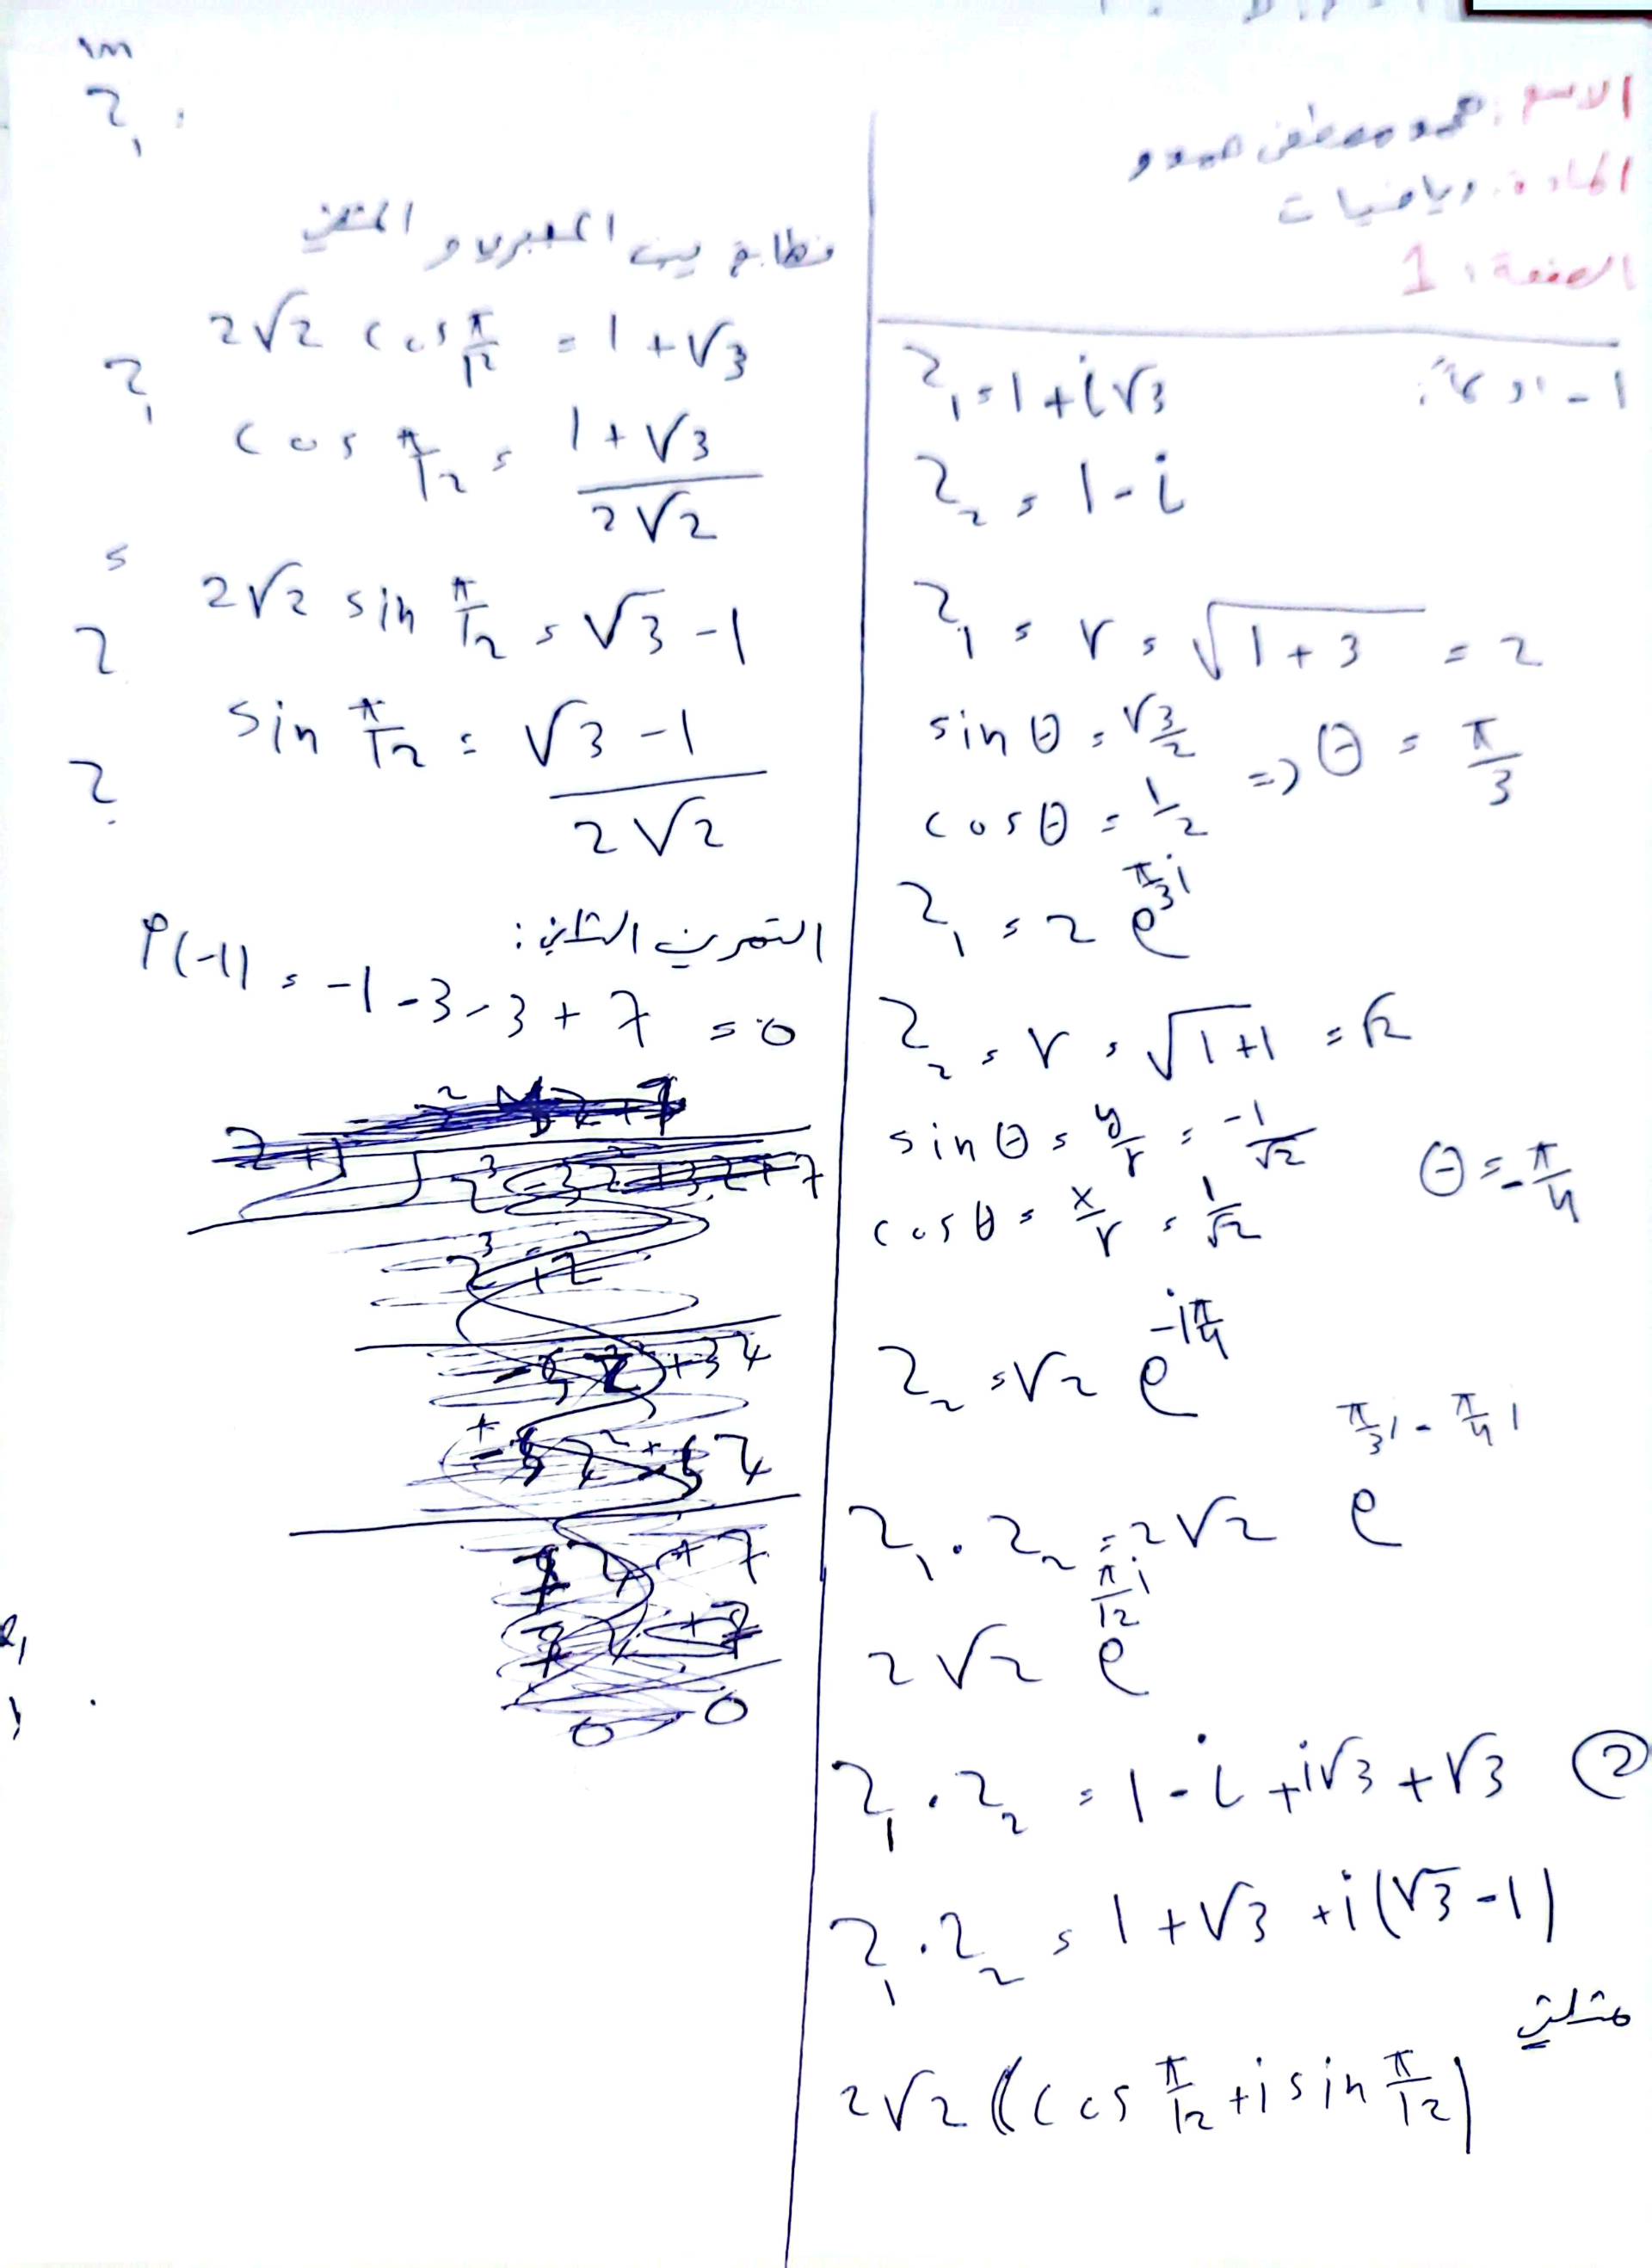 الاسم: محمد مصطفى حميدو
المادة: رياضيات
الصفحة: 1
1 - أولاً:
Z₁ = 1 + i√3
Z₂ = 1 - i
Z₁ = r = √(1 + 3) = 2
sin θ = √3/2
cos θ = 1/2 => θ = π/3
Z₁ = 2 e^(π/3 i)
Z₂ = r = √(1+1) = √2
sin θ = y/r = -1/√2
cos θ = x/r = 1/√2 θ = -π/4
Z₂ = √2 e^(-iπ/4)
Z₁ . Z₂ = 2√2 e^(π/3 i - π/4 i)
2√2 e^(π/12 i)
② Z₁ . Z₂ = 1 - i + i√3 + √3
Z₁ . Z₂ = 1 + √3 + i(√3 - 1)
مثلثي
2√2 ((cos π/12 + i sin π/12)
الجبري و المثلثي
2√2 cos π/12 = 1 + √3
cos π/12 = (1 + √3)/(2√2)
2√2 sin π/12 = √3 - 1
sin π/12 = (√3 - 1)/(2√2)
التمرين الثاني:
P(-1) = -1 - 3 - 3 + 7 = 0